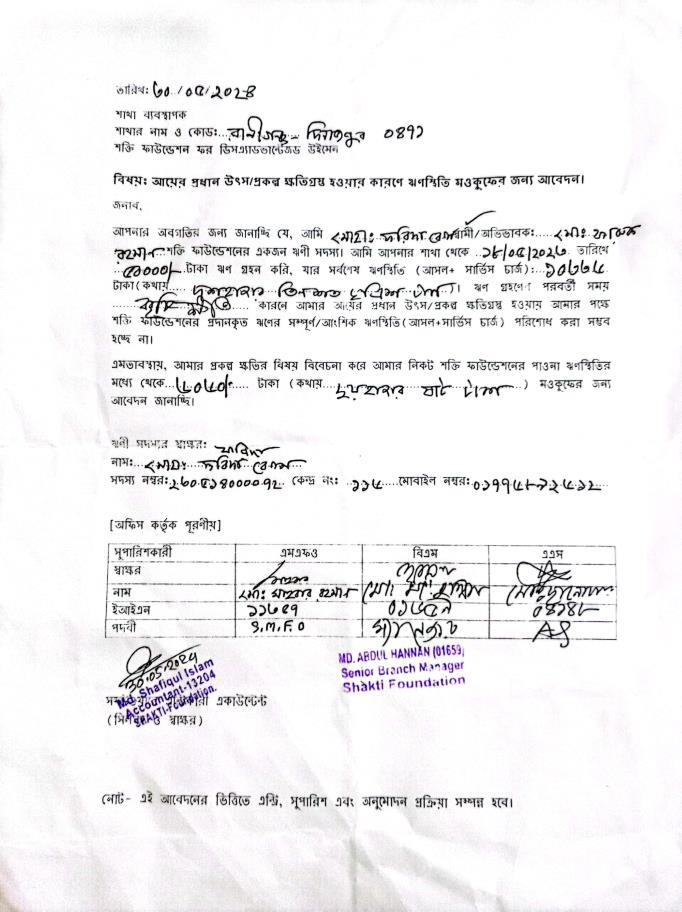 তারিখ: ৩০/০৫/২০২৪
শাখা ব্যবস্থাপক
শাখার নাম ও কোড:...রানীগঞ্জ - দিনাজপুর ০৪৭১
শক্তি ফাউন্ডেশন ফর ডিসএ্যাডভান্টেজড উইমেন
বিষয়: আয়ের প্রধান উৎস/প্রকল্প ক্ষতিগ্রস্থ হওয়ার কারণে ঋণস্থিতি মওকুফের জন্য আবেদন।
জনাব,
আপনার অবগতির জন্য জানাচ্ছি যে, আমি মোছাঃ ফরিদা বেগম স্বামী/অভিভাবক:.....মোঃ
রহমান শক্তি ফাউন্ডেশনের একজন ঋণী সদস্য। আমি আপনার শাখা থেকে ..১৮/০৫/২০২৩ তারিখে
৫০০০০/- টাকা ঋণ গ্রহন করি, যার সর্বশেষ ঋণস্থিতি (আসল+ সার্ভিস চার্জ):
টাকা(কথায় দশ হাজার তিনশত টাকা)। ঋণ গ্রহণের পরবর্তী সময়
কারনে আমার আয়ের প্রধান উৎস/প্রকল্প ক্ষতিগ্রস্থ হওয়ায় আমার পক্ষে
শক্তি ফাউন্ডেশনের প্রদানকৃত ঋণের সম্পূর্ণ/আংশিক ঋণস্থিতি(আসল+সার্ভিস চার্জ) পরিশোধ করা সম্ভব
হচ্ছে না।
এমতাবস্থায়, আমার প্রকল্প ক্ষতির বিষয় বিবেচনা করে আমার নিকট শক্তি ফাউন্ডেশনের পাওনা ঋণস্থিতির
মধ্যে থেকে...৬০৬০/-..... টাকা (কথায়....ছয় হাজার ষাট টাকা......) মওকুফের জন্য
আবেদন জানাচ্ছি।
ঋণী সদস্যর স্বাক্ষর: ফরিদা
নাম:...মোছাঃ ফরিদা বেগম...
সদস্য নম্বর: কেন্দ্র নং: ..১১৬ ....মোবাইল নম্বর:
[অফিস কর্তৃক পূরণীয়]
সুপারিশকারী এমএফও বিএম এএস
স্বাক্ষর
নাম মোঃ রহমান
ইআইএন ১১৬৫৭ ০১৬৫৯
পদবী S.M.F.O AS
30.05.2024
Md. Shafiqul Islam
Accountant-13204
SHAKTI-Foundation.
MD. ABDUL HANNAN (01659)
Senior Branch Manager
Shakti Foundation
একাউন্টেন্ট
স্বাক্ষর)
নোট- এই আবেদনের ভিত্তিতে এন্ট্রি, সুপারিশ এবং অনুমোদন প্রক্রিয়া সম্পন্ন হবে।